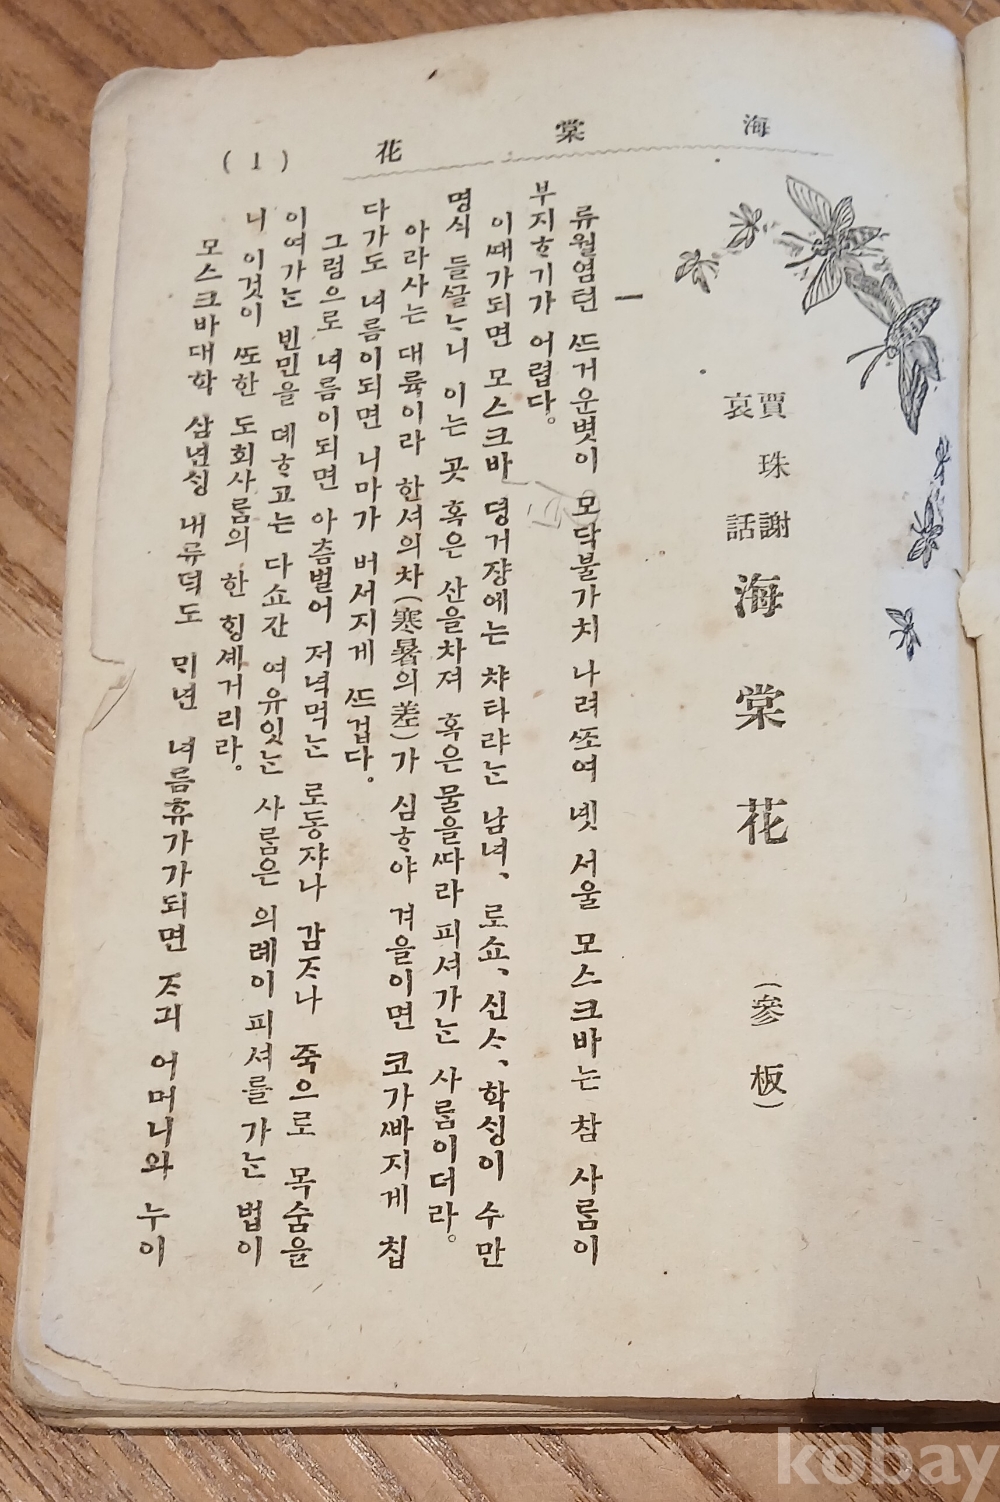 海棠花
(1)
賈珠謝
哀話
海棠花
(參板)
一
류월염턴 ᄯᅳ거운볏이 모닥불가치 나려ᄶᅩ여 녯 서울 모스크바는 참 사ᄅᆞᆷ이
부지ᄒᆞ기가 어렵다。
이ᄯᅢ가되면 모스크바 뎡거쟝에는 챠타랴ᄂᆞᆫ 남녀、로쇼、신ᄉᆞ、학ᄉᆡᆼ이 수만
명식 들ᄭᅳᆯᄂᆞ니 이는 곳 혹은 산을차져 혹은물을ᄯᅡ라 피셔가ᄂᆞᆫ 사ᄅᆞᆷ이더라。
아라사는 대륙이라 한셔의차(寒暑의差)가 심ᄒᆞ야 겨을이면 코가ᄲᅡ지게 칩
다가도 녀름이되면 니마가 버서지게 ᄯᅳ겁다。
그럼으로 녀름이되면 아츰벌어 저녁먹ᄂᆞᆫ 로동쟈나 감ᄌᆞ나 죽으로 목숨을
이여가ᄂᆞᆫ 빈민을 뎨ᄒᆞ고는 다쇼간 여유잇ᄂᆞᆫ 사ᄅᆞᆷ은 의례이 피셔를 가ᄂᆞᆫ 법이
니 이것이 ᄯᅩ한 도회사ᄅᆞᆷ의 한 ᄒᆡᆼ셰거리라。
모스크바대학 삼년ᄉᆡᆼ 내류덕도 ᄆᆡ년 녀름휴가가되면 ᄌᆞ긔 어머니와 누이
kobay